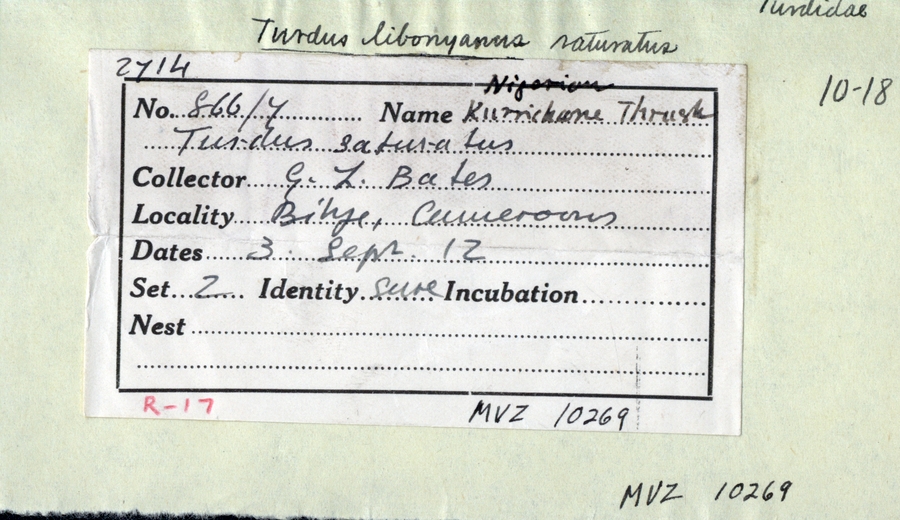 Turdidae
Turdus libonyanus saturatus
10-18
2714
Nigerian
No. 866/4 Name Kurrichane Thrush
Turdus saturatus
Collector G. L. Bates
Locality Bitye, Cameroons
Dates 3. Sept. 12
Set 2 Identity sure Incubation
Nest
R-17
MVZ 10269
MVZ 10269